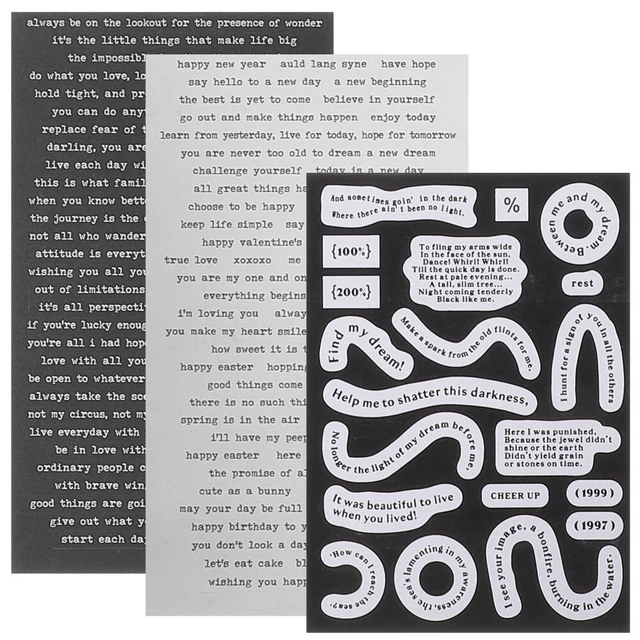 always be on the lookout for the presence of wonder
it's the little things that make life big
the impossibl
do what you love, lo
hold tight, and pr
you can do any
replace fear of t
darling, you are
live each day wi
this is what famil
when you know bett
the journey is the d
not all who wander
attitude is everyt
wishing you all you
out of limitations
it's all perspecti
if you're lucky enoug
you're all i had hop
love with all you
be open to whatever
always take the sce
not my circus, not my
live everyday with
be in love with
ordinary people c
with brave win
good things are goi
give out what y
start each day
happy new year auld lang syne have hope
say hello to a new day a new beginning
the best is yet to come believe in yourself
go out and make things happen enjoy today
learn from yesterday, live for today, hope for tomorrow
you are never too old to dream a new dream
challenge yourself today is a new day
all great things ha
choose to be happy
keep life simple say
happy valentine's
true love xoxoxo me
you are my one and on
everything begins
i'm loving you alway
you make my heart smile
how sweet it is t
happy easter hoppin
good things come
there is no such thi
spring is in the air
i'll have my peep
happy easter here
the promise of al
cute as a bunny
may your day be full
happy birthday to y
you don't look a day
let's eat cake bl
wishing you happ
And sometimes goin' in the dark
Where there ain't been no light.
%
Between me and my dream.
{100%}
{200%}
To fling my arms wide
In the face of the sun,
Dance! Whirl! Whirl!
Till the quick day is done.
Rest at pale evening...
A tall, slim tree...
Night coming tenderly
Black like me.
rest
Find my dream!
Make a spark from the old flints for me.
I hunt for a sign of you in all the others
Help me to shatter this darkness,
No longer the light of my dream before me,
Here I was punished,
Because the jewel didn't
shine or the earth
Didn't yield grain
or stones on time.
It was beautiful to live
when you lived!
CHEER UP
(1999)
(1997)
'How can I reach the sea?'
the sea's lamenting in my awareness,
I see your image, a bonfire, burning in the water.